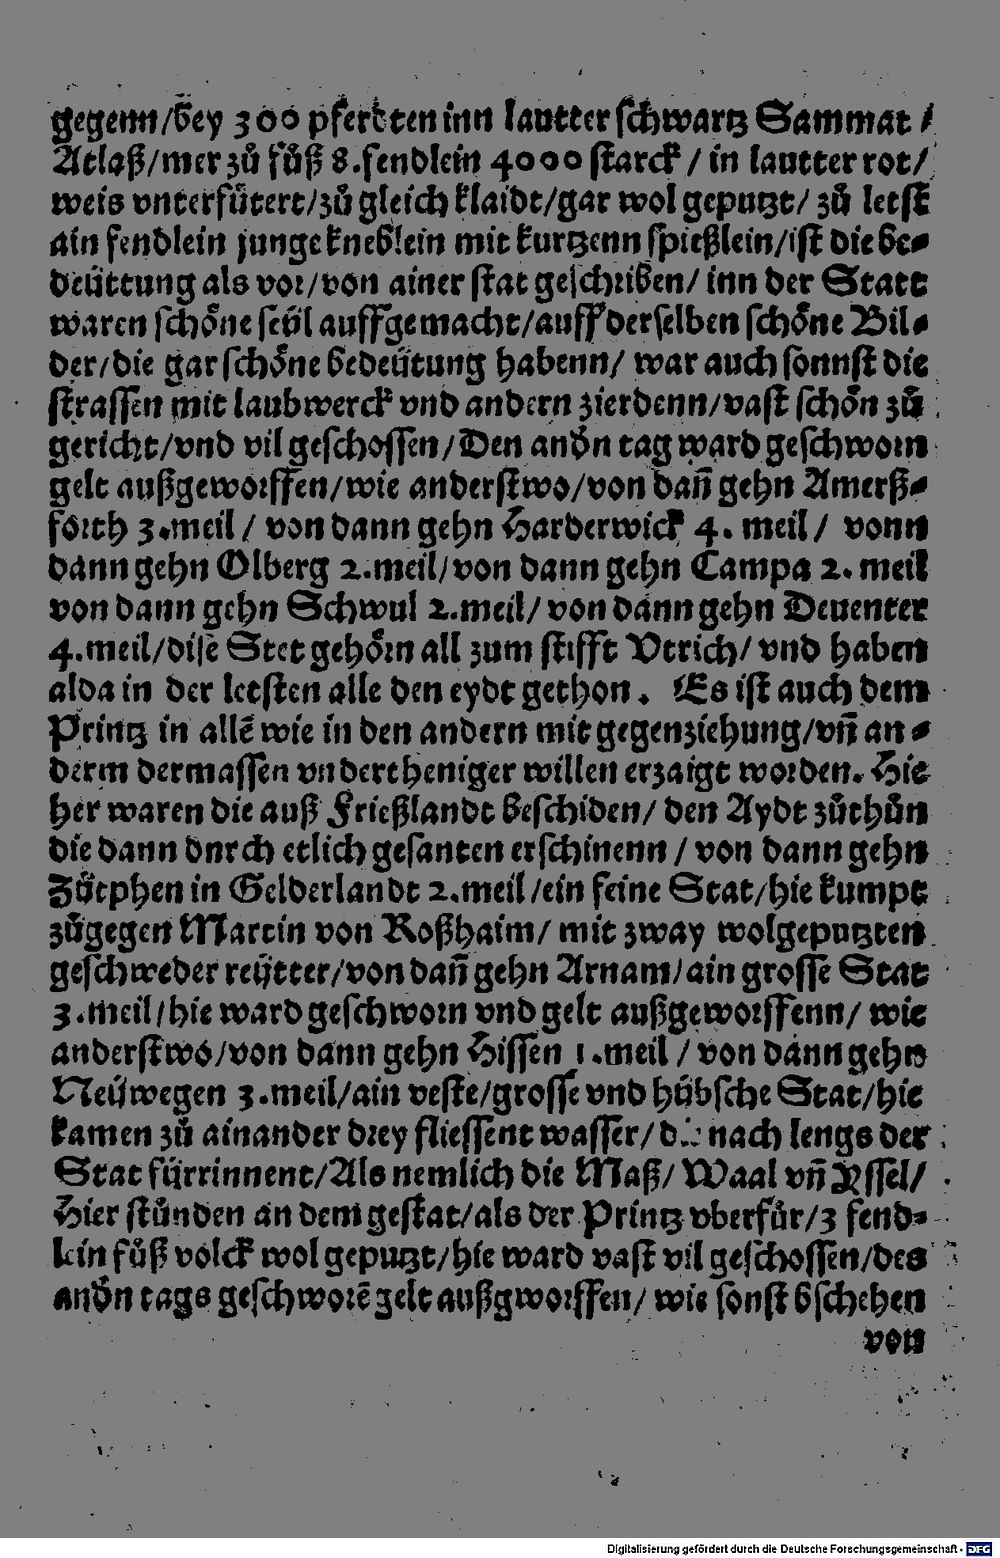 gegenn/bey 300 pferdten inn lautter schwartz Sammat /
Atlaß/mer zů fůß 8.fendlein 4000 starck / in lautter rot/
weis vnterfütert/zů gleich klaidt/gar wol geputzt/ zů letst
ain fendlein junge kneblein mit kurtzenn spießlein/ist die be⸗
deüttung als vor/von ainer stat geschriben/ inn der Statt
waren schöne seül auffgemacht/auff derselben schöne Bil⸗
der/die gar schöne bedeütung habenn/ war auch sonnst die
strassen mit laubwerck vnd andern zierdenn/vast schön zů
gericht/vnd vil geschossen/Den andn tag ward geschworn
gelt außgeworffen/wie anderstwo/von dañ gehn Amerß⸗
forth 3.meil / von dann gehn Harderwick 4. meil / vonn
dann gehn Olberg 2.meil/von dann gehn Campa 2. meil
von dann gehn Schwul 2.meil/ von dann gehn Deuenter
4.meil/dise Stet gehörn all zum stifft Vtrich/ vnd haben
alda in der letsten alle den eydt gethon. Es ist auch dem
Printz in allē wie in den andern mit gegenziehung/vñ an⸗
derm dermassen vndertheniger willen erzaigt worden. Hie
her waren die auß Frießlandt beschiden/ den Aydt zůthůn
die dann dnrch etlich gesanten erschinenn / von dann gehn
Zütphen in Gelderlandt 2.meil/ein feine Stat/hie kumpt
zůgegen Martin von Roßhaim/ mit zway wolgeputzten
geschweder reütter/von dañ gehn Arnam/ain grosse Stat
3.meil/hie ward geschworn vnd gelt außgeworffenn/ wie
anderstwo/von dann gehn Hissen 1.meil / von dann gehn
Neüwegen 3.meil/ain veste/grosse vnd hübsche Stat/hie
kamen zů ainander drey fliessent wasser/ nach lengs der
Stat fürrinnent/Als nemlich die Maß/ Waal vñ Yssel/
Hier stůnden an dem gestat/als der Printz vberfůr/3 fend⸗
lein fůß volck wol geputzt/hie ward vast vil geschossen/des
andn tags geschworē gelt außgworffen/ wie sonst bschehen
von
Digitalisierung gefördert durch die Deutsche Forschungsgemeinschaft - DFG